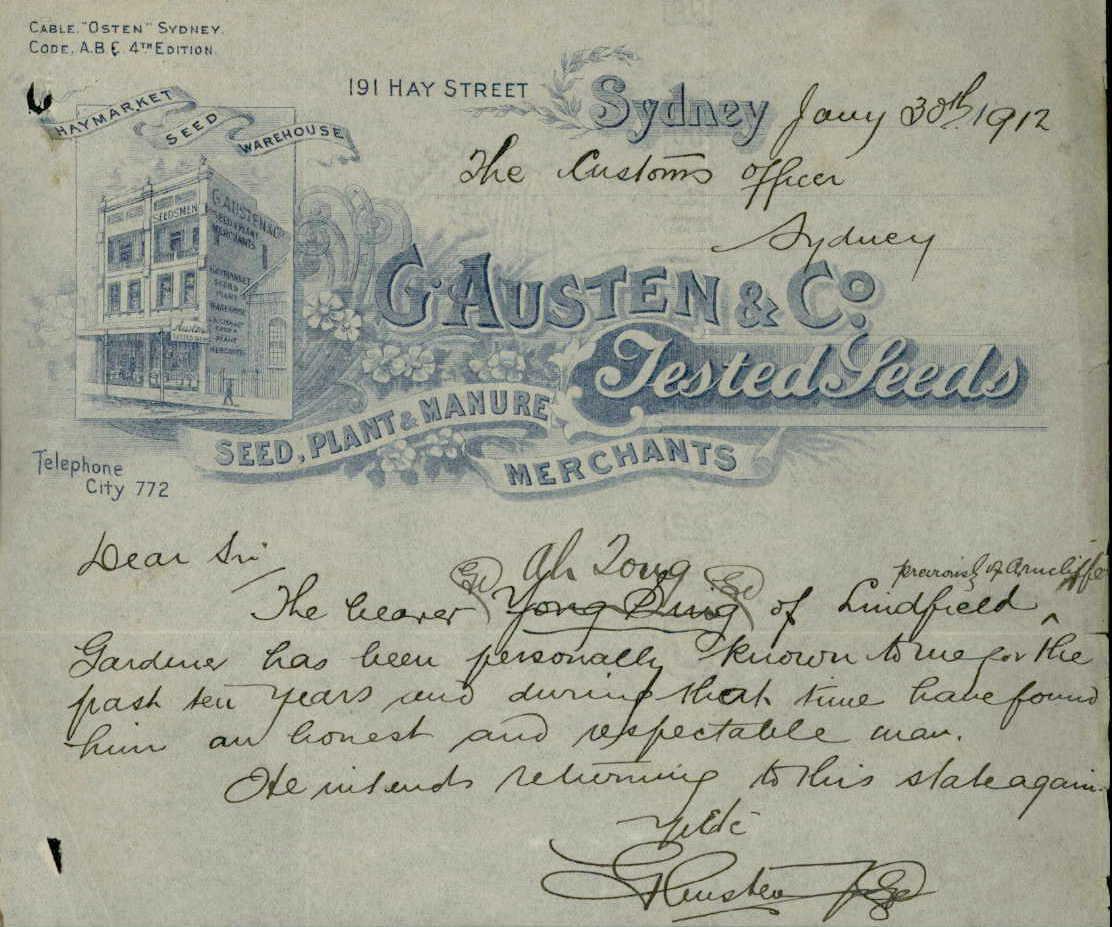 CABLE. "OSTEN" SYDNEY.
CODE, A.B.C. 4TH EDITION.
191 HAY STREET
Sydney Jany 30th 1912
HAYMARKET SEED WAREHOUSE
The Customs Officer
Sydney
SEEDSMEN
G. AUSTEN & CO
SEED & PLANT
MERCHANTS
HAYMARKET
SEED &
PLANT
WAREHOUSE
G. AUSTEN & Co.
Tested Seeds
SEED, PLANT & MANURE
MERCHANTS
Telephone
City 772
Dear Sir
Ah Tong previously of Arncliffe
The bearer Yong Sing of Lindfield
Gardener has been personally known to me for the
past ten years and during that time have found
him an honest and respectable man.
He intends returning to this state again.
Yrs Etc
G Austen & Co